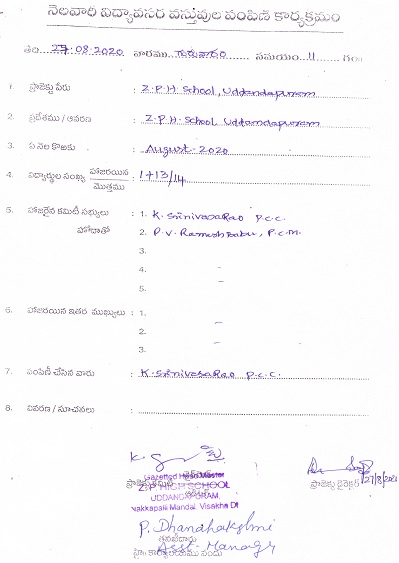 నెలవారీ విద్యావసర వస్తువుల పంపిణీ కార్యక్రమం
తేది 27:08:2020 వారము గురువారం సమయం 11 గం
1. ప్రాజెక్టు పేరు : Z.P.H School, Uddandapuram
2. ప్రదేశము / ఆవరణ : Z.P.H. School, Uddandapuram
3. ఏ నెల కొఱకు : August-2020
4. విద్యార్థుల సంఖ్య హాజరయిన / మొత్తము : 1+13/14
5. హాజరైన కమిటీ సభ్యులు : 1. K. Srinivasa Rao P.C.C.
హోదాతో 2. P.V. Ramesh Babu, P.C.M.
3.
4. –
5. –
6. హాజరయిన ఇతర ముఖ్యులు : 1. –
2. –
3. –
7. పంపిణీ చేసిన వారు : K. Srinivasa Rao P.C.C.
8. వివరణ / సూచనలు :
Gazetted Head Master
ప్రాజెక్టు కమిటీ
Z.P HIGH SCHOOL
ప్రాజెక్టు డైరెక్టర్ 27/8/2020
UDDANDAPURAM,
Nakkapalli Mandal, Visakha Dt
P. Dhanalakshmi
Asst-Manager